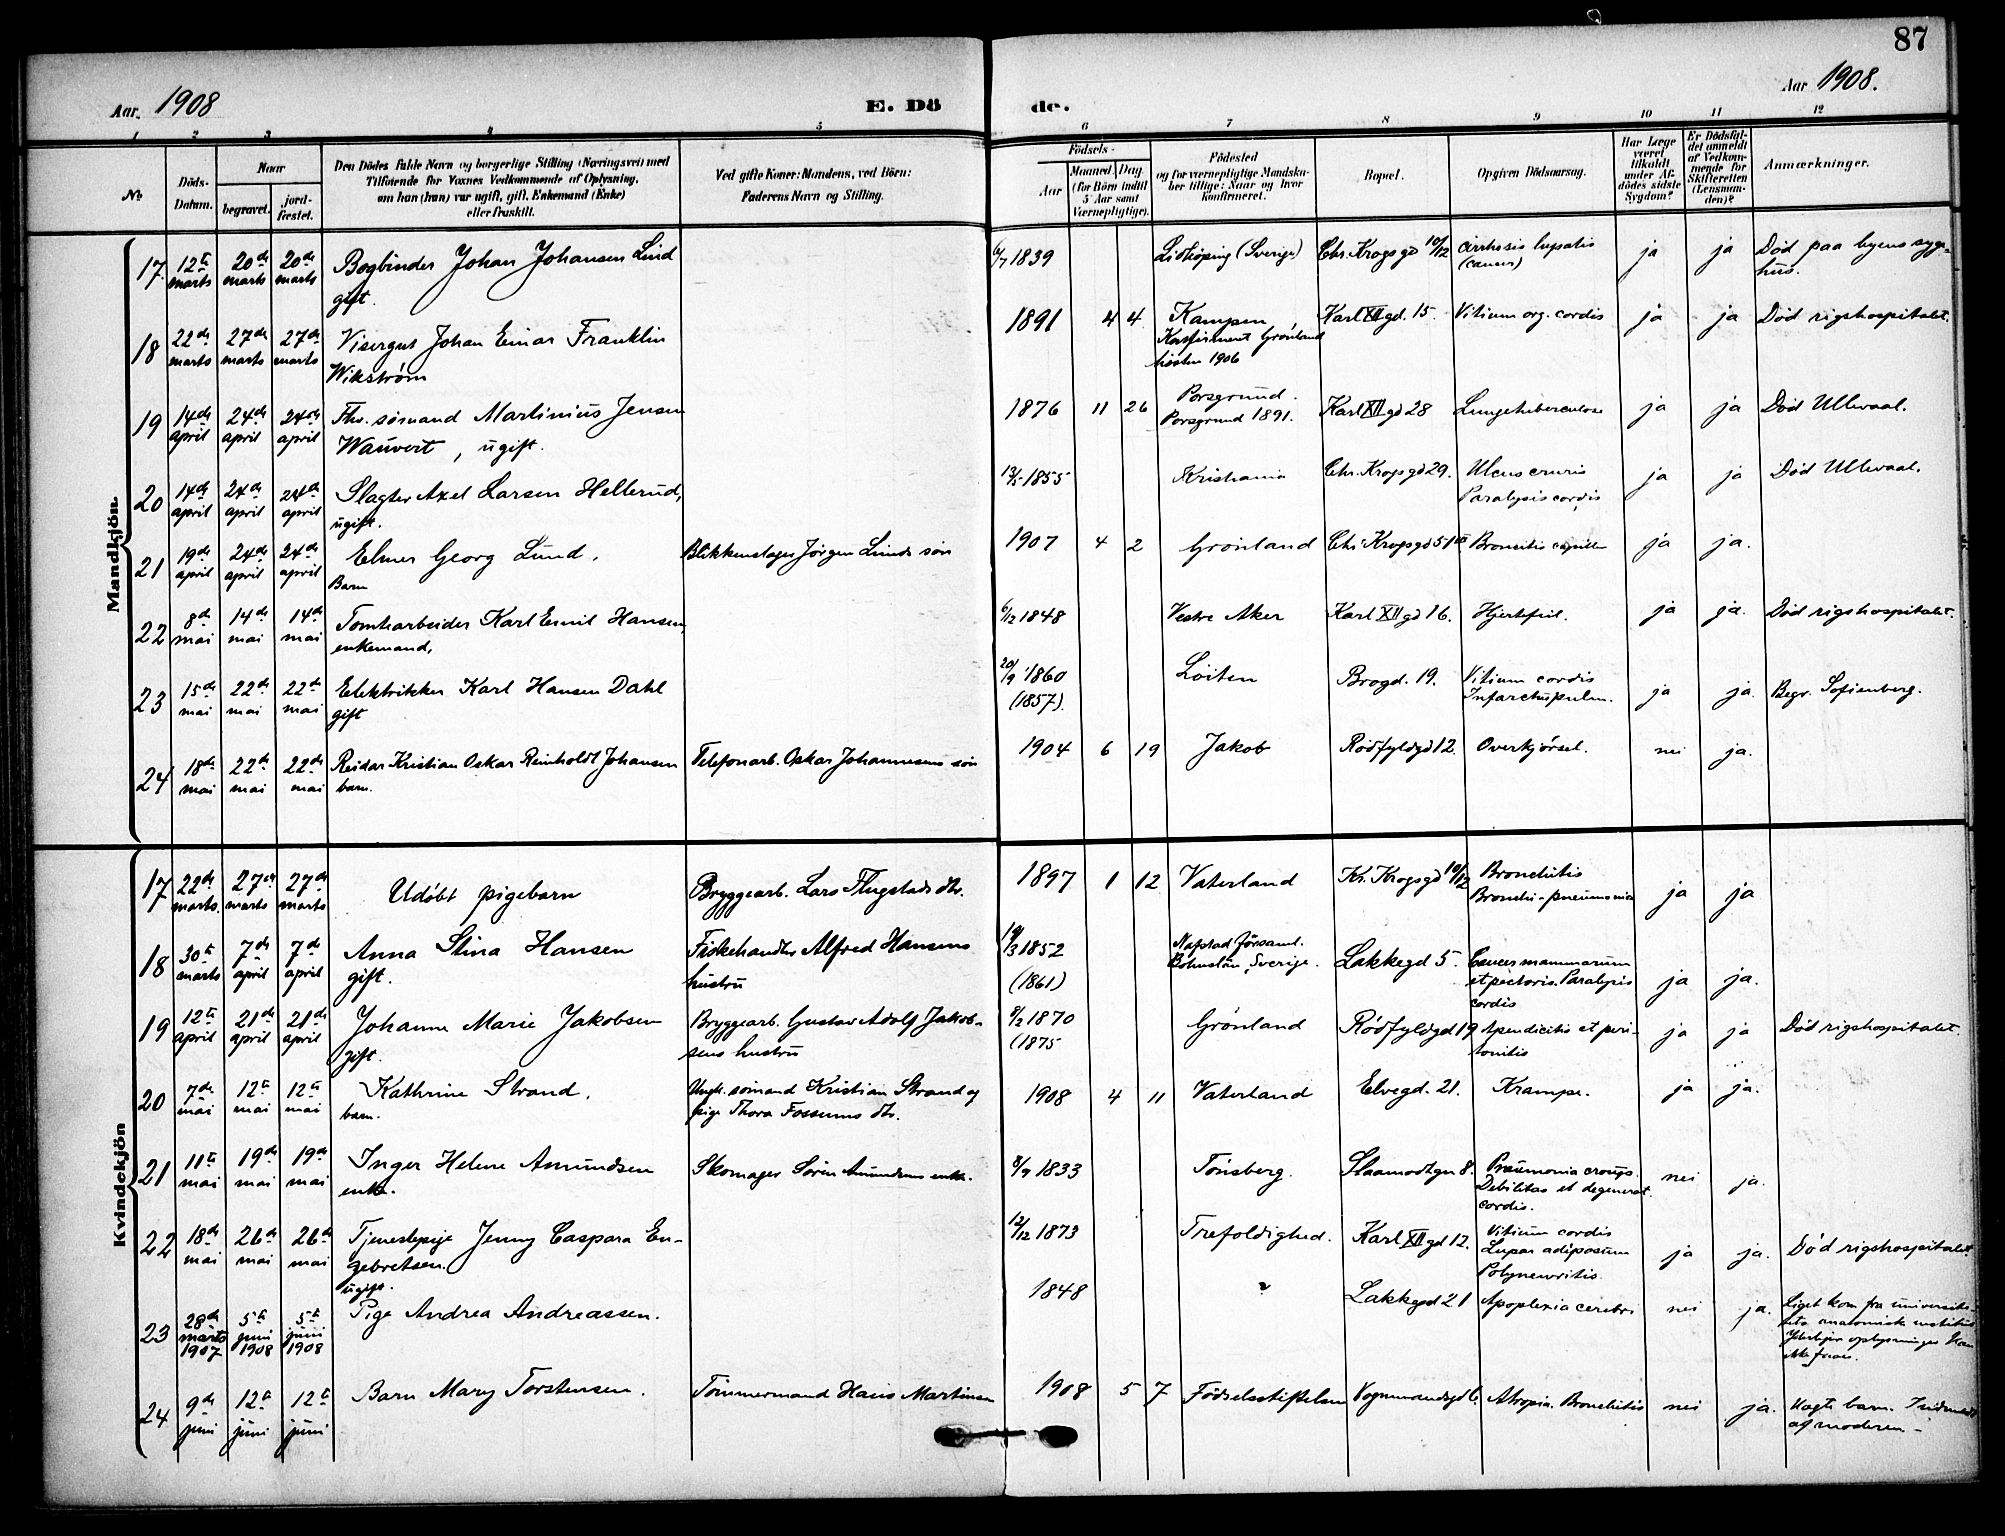 87
Aar 1908 E. Dö de. Aar 1908.
1 2 3 4 5 6 7 8 9 10 11 12
No. Döds-Datum. Naar begravet. jord-fæstet. Den Dödes fulde Navn og borgerlige Stilling (Næringsvei) med Tilföiende for Voxnes Vedkommende af Oplysning, om han (hun) var ugift, gift, Enkemand (Enke) eller fraskilt. Ved gifte Koner: Mandens, ved Börn: Faderens Navn og Stilling. Födsels- Aar Maaned Dag. (for Börn indtil 5 Aar samt Værnepligtige). Födested og for værnepligtige Mandskaber tillige: Naar og hvor konfirmeret. Bopæl. Opgiven Dödsaarsag. Har Læge været tilkaldt under Afdödes sidste Sygdom? Er Dödsfaldet anmeldt af Vedkommende for Skifteretten (Lensmanden)? Anmærkninger.
Mandkjön.
17 12te marts 20de marts 20de marts Bogbinder Johan Johansen Lind gift. 6/7 1839 Lidköping (Sverige) Chr. Krogsgd 10/12 cirrhosis hepatis (cancer) ja ja Död paa byens sygehus.
18 22de marts 27de marts 27de marts Visergut Johan Einar Franklin Wikström 1891 4 4 Kampen Konfirmeret Grönland hösten 1906 Karl XII gd. 15. Vitium org. cordis ja ja Död rigshospitalet.
19 14de april 24de april 24de april Fhv. sömand Martinius Jensen Wauvert, ugift. 1876 11 26 Porsgrund. Porsgrund 1891. Karl XII gd 28 Lungetuberculose ja ja Död Ullevaal.
20 14de april 24de april 24de april Slagter Axel Larsen Hellerud, ugift. 1855 Kristiania Chr. Krogsgd 29. Ulcus cruris Paralysis cordis ja ja Död Ullevaal.
21 19de april 24de april 24de april Elmer Georg Lund. Barn Blikkenslager Jörgen Lunds sön 1907 4 2 Grönland Chr. Krogsgd 51 Bronchitis capill ja ja.
22 8de mai 14de mai 14de mai Tomtearbeider Karl Emil Hansen, enkemand, 6/12 1848 Vestre Aker Karl XII gd 16. Hjertefeil. ja ja. Död rigshospitalet.
23 15de mai 22de mai 22de mai Elektrikker Karl Hansen Dahl gift 20/9 1860 (1857). Löiten Brogd. 19. Vitium cordis Infarctus pulm. ja ja. Begr. Sofienberg.
24 18de mai 22de mai 22de mai Reidar Kristian Oskar Reinholdt Johansen barn. Telefonarb. Oskar Johannesens sön 1904 6 19 Jakob Rödfyldgd 12. Overkjörsel. nei ja.
Kvindekjön
17 22de marts. 27de marts 27de marts Udöbt pigebarn Bryggearb. Lars Flugstads dtr. 1897 1 12 Vaterland Kr. Krogsgd 10/12 Bronchitis Bronchi-pneumonia ja ja
18 30te marts 7de april 7de april Anna Stina Hansen gift. Fiskehandler Alfred Hansens hustru 19/3 1852 (1861) Nafstad Församl. Bohuslän, Sverige. Lakkegd 5. Cancer mammarum et pectoris. Paralysis cordis ja ja.
19 12te april 21de april 21de april Johanne Marie Jakobsen gift. Bryggearb. Gustav Adolf Jakobsens hustru 9/2 1870 (1875 Grönland Rödfyldgd 19 Apendicitis et peritonitis ja ja Död rigshospitalet.
20 7de mai 12te mai 12te mai Kathrine Strand. barn. Ungk. sömand Kristian Strand og pige Thora Fossums dtr. 1908 4 11 Vaterland Elvegd. 21. Krampe. ja ja.
21 11te mai 19de mai 19de mai Inger Helene Amundsen enke. Skomager Sören Amundsens enke. 3/9 1833 Tönsberg. Slaamodtgn 8. Pneumonia croup. Debilitas et degenerat. cordis. nei ja.
22 18de mai 26de mai 26de mai Tjenestepige Jenny Caspara Engebretsen. ugift. 12/12 1873 Trefoldighed. Karl XII gd 12. Vitium cordis adiposum Polyneuritis. ja ja. Död rigshospitalet
23 28de marts 1907 5te juni 1908 5te juni 1908 Pige Andrea Andreassen. 1848 ? Lakkegd 21 Apoplexia cerebri nei ja. Liget kom fra universitetets anatomisk institut Yderligere oplysninger kan ikke faaes.
24 9de juni 12te juni 12te juni Barn Mary Torstensen. Tömmermand Hans Martinsen 1908 5 7 Födselsstiftelsen Vognmandsgd 6. Atropia. Bronchitis nei ja. Uægte barn. af moderen -